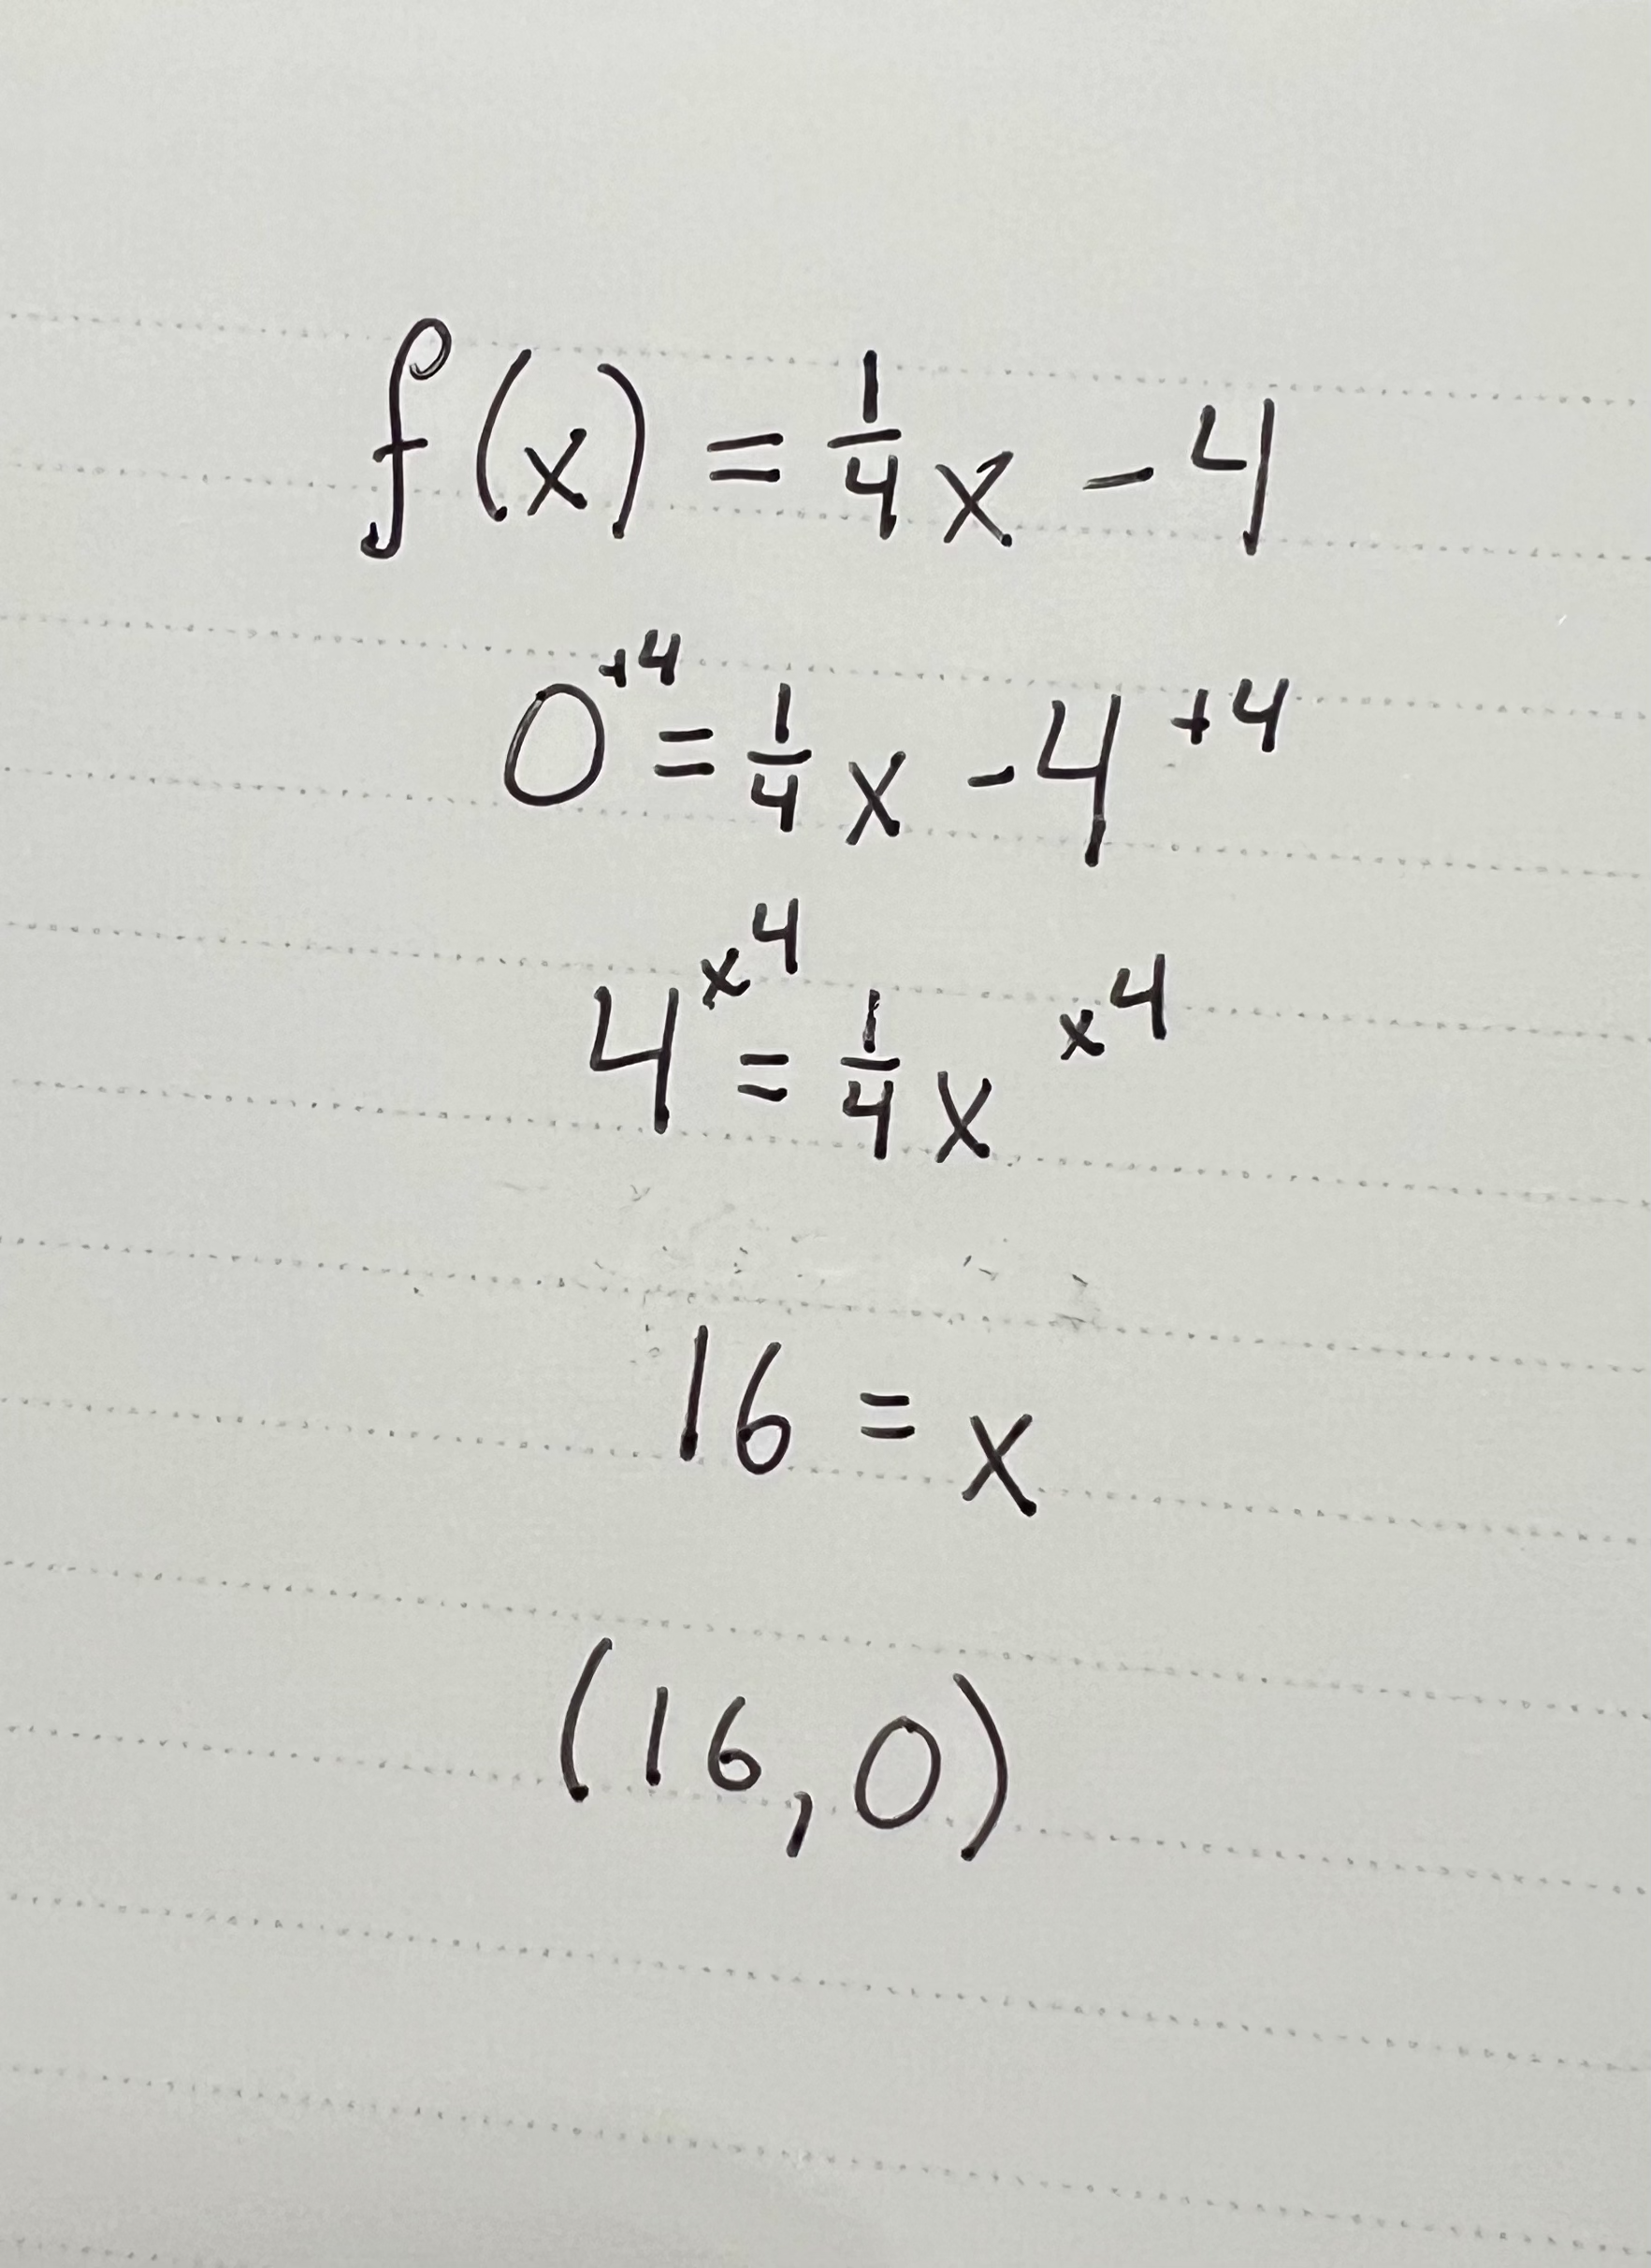 f(x) = 1/4 x - 4
0 +4 = 1/4 x - 4 +4
4 x4 = 1/4 x x4
16 = x
(16, 0)